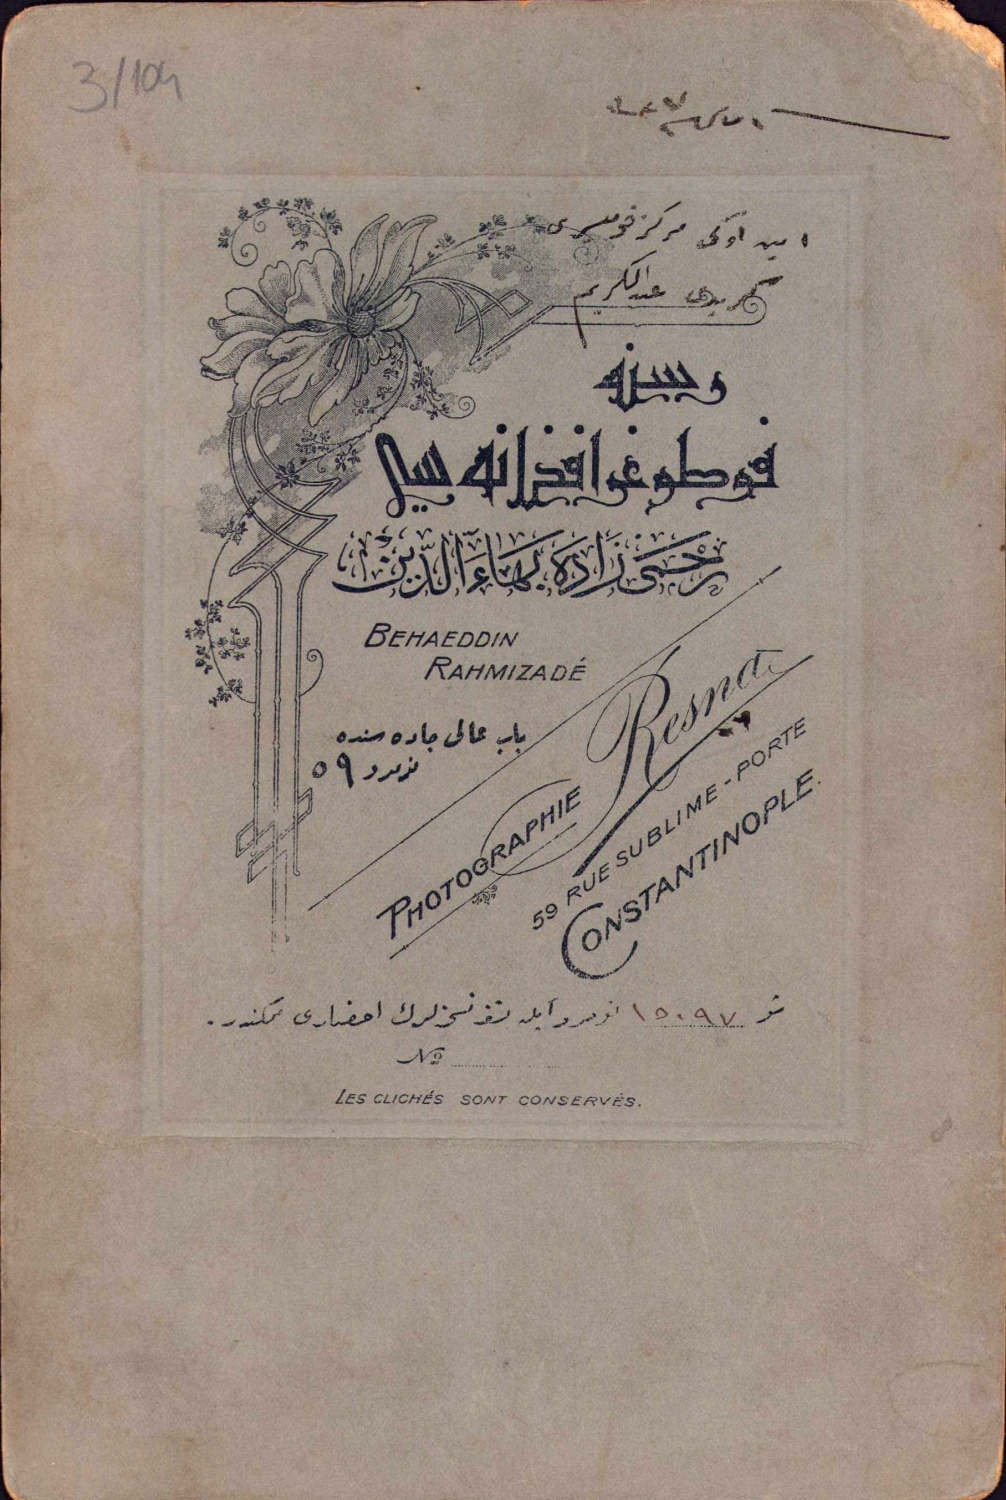 3/104
مركز قوميسرى
عبدالكريم
رسنه
فوطوغرافخانه سى
رحمى زاده بهاء الدين
BEHAEDDIN
RAHMIZADÉ
باب عالى جاده سنده
نومرو ٥٩
PHOTOGRAPHIE Resna
59 RUE SUBLIME-PORTE
CONSTANTINOPLE.
١٥٠٩٧ نومرو ايله احضارى ممكندر.
No
LES CLICHÉS SONT CONSERVÉS.